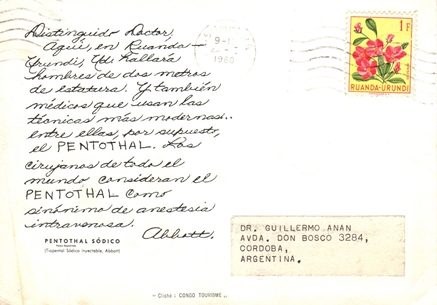 Distinguido Doctor,
Aquí, en Ruanda-
Urundi, Ud. hallará
hombres de dos metros
de estatura. Y también
médicos que usan las
técnicas más modernas..
entre ellas, por supuesto,
el PENTOTHAL. Los
cirujanos de todo el
mundo consideran el
PENTOTHAL como
sinónimo de anestesia
intravenosa.
Abbott.
PENTOTHAL SÓDICO
(Tiopental Sódico Inyectable, Abbott)
9-1
1960
1F
RUANDA-URUNDI
DR. GUILLERMO ANAN
AVDA. DON BOSCO 3284,
CORDOBA,
ARGENTINA.
- Cliché : CONGO TOURISME ..